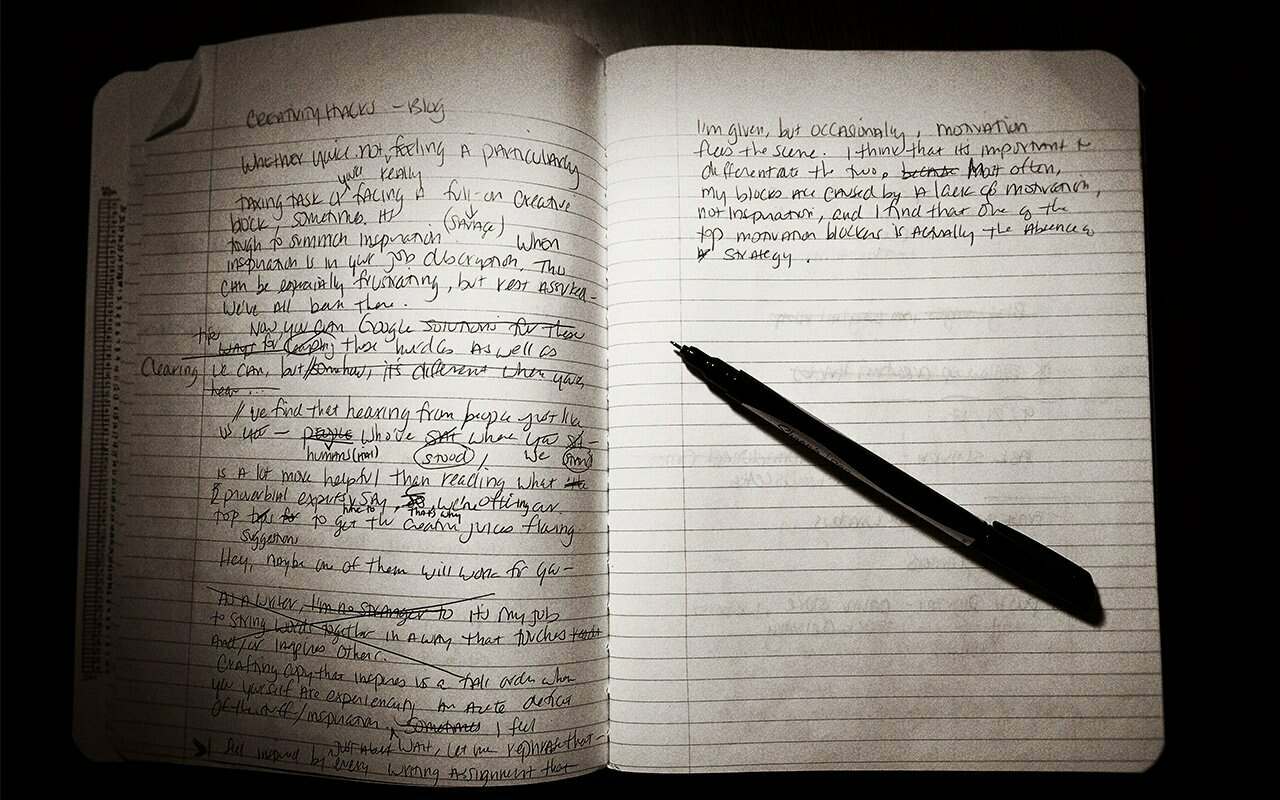 CREATIVITY HACKS - Blog
Whether you're not feeling a particularly
you're really
taxing task or facing a full-on creative
block, sometimes its (SAVAGE)
tough to summon inspiration. When
inspiration is in your job description. This
can be especially frustrating, but rest assured -
we've all been there.
Now you can Google solutions for these
tips
ways for clearing these hurdles as well as
Clearing we can, but somehow, it's different when you're
hear...
// we find that hearing from people just like
us you - people who've sat where you sit -
humans (non) stood / we stand
is a lot more helpful than reading what the
proverbial experts say, so we're offering our
how to That's why
top tips for to get the creative juices flowing
suggestions
Hey, maybe one of them will work for you -
As a writer, I'm no stranger to its my job
to string words together in a way that touches
And/or inspires others.
Crafting copy that inspires is a tall order when
you yourself are experiencing an acute deficit
of the stuff/inspiration. Sometimes I feel
just about Wait, let me rephrase that -
I feel inspired by every writing assignment that
I'm given, but occasionally, motivation
flees the scene. I think that its important to
differentiate the two, because Most often,
my blocks are caused by a lack of motivation,
not inspiration, and I find that one of the
top motivation blockers is actually the absence of
strategy.